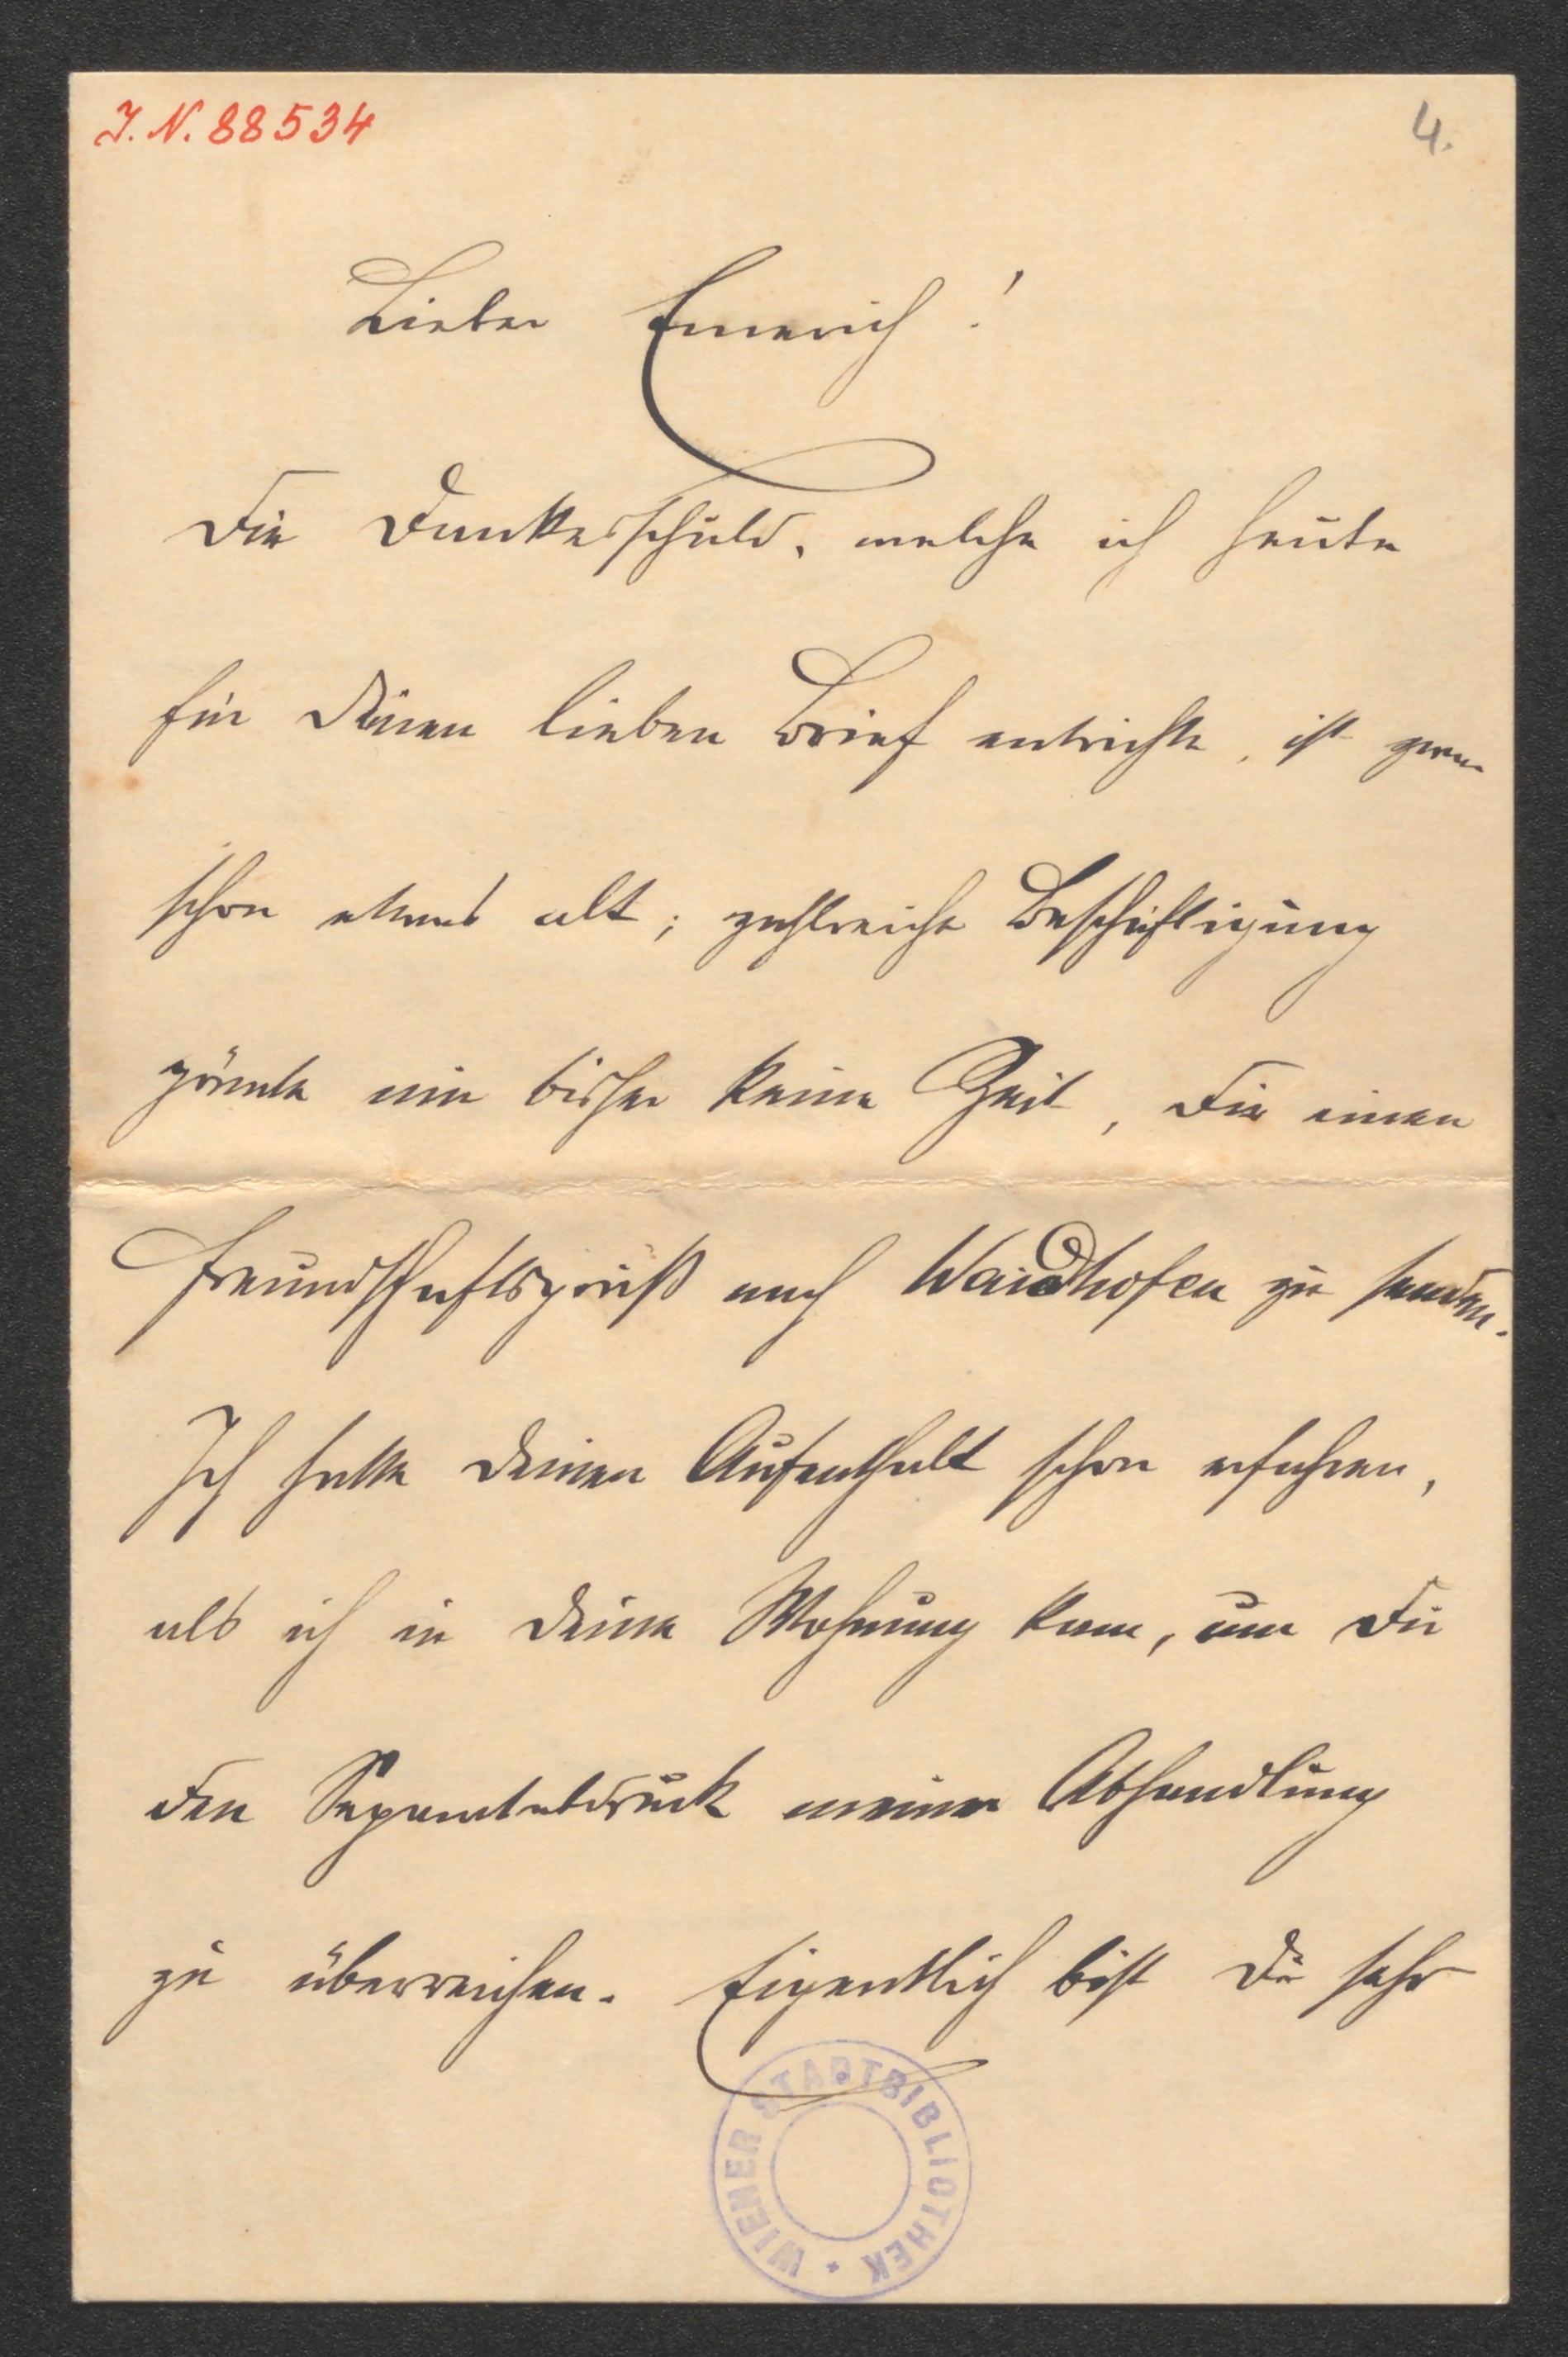 J. N. 88534
4.
Lieber Emerich!
Die Dankesschuld, welche ich heute
für Deinen lieben Brief entrichte, ist zwar
schon etwas alt; zahlreiche Beschäftigung
gönnte mir bisher keine Zeit, Dir einen
Freundschaftsgruß nach Waidhofen zu senden.
Ich hatte Deinen Aufenthalt schon erfahren,
als ich in Deine Wohnung kam, um Dir
den Separatabdruck meiner Abhandlung
zu überreichen. Eigentlich bist Du sehr
WIENER STADTBIBLIOTHEK *